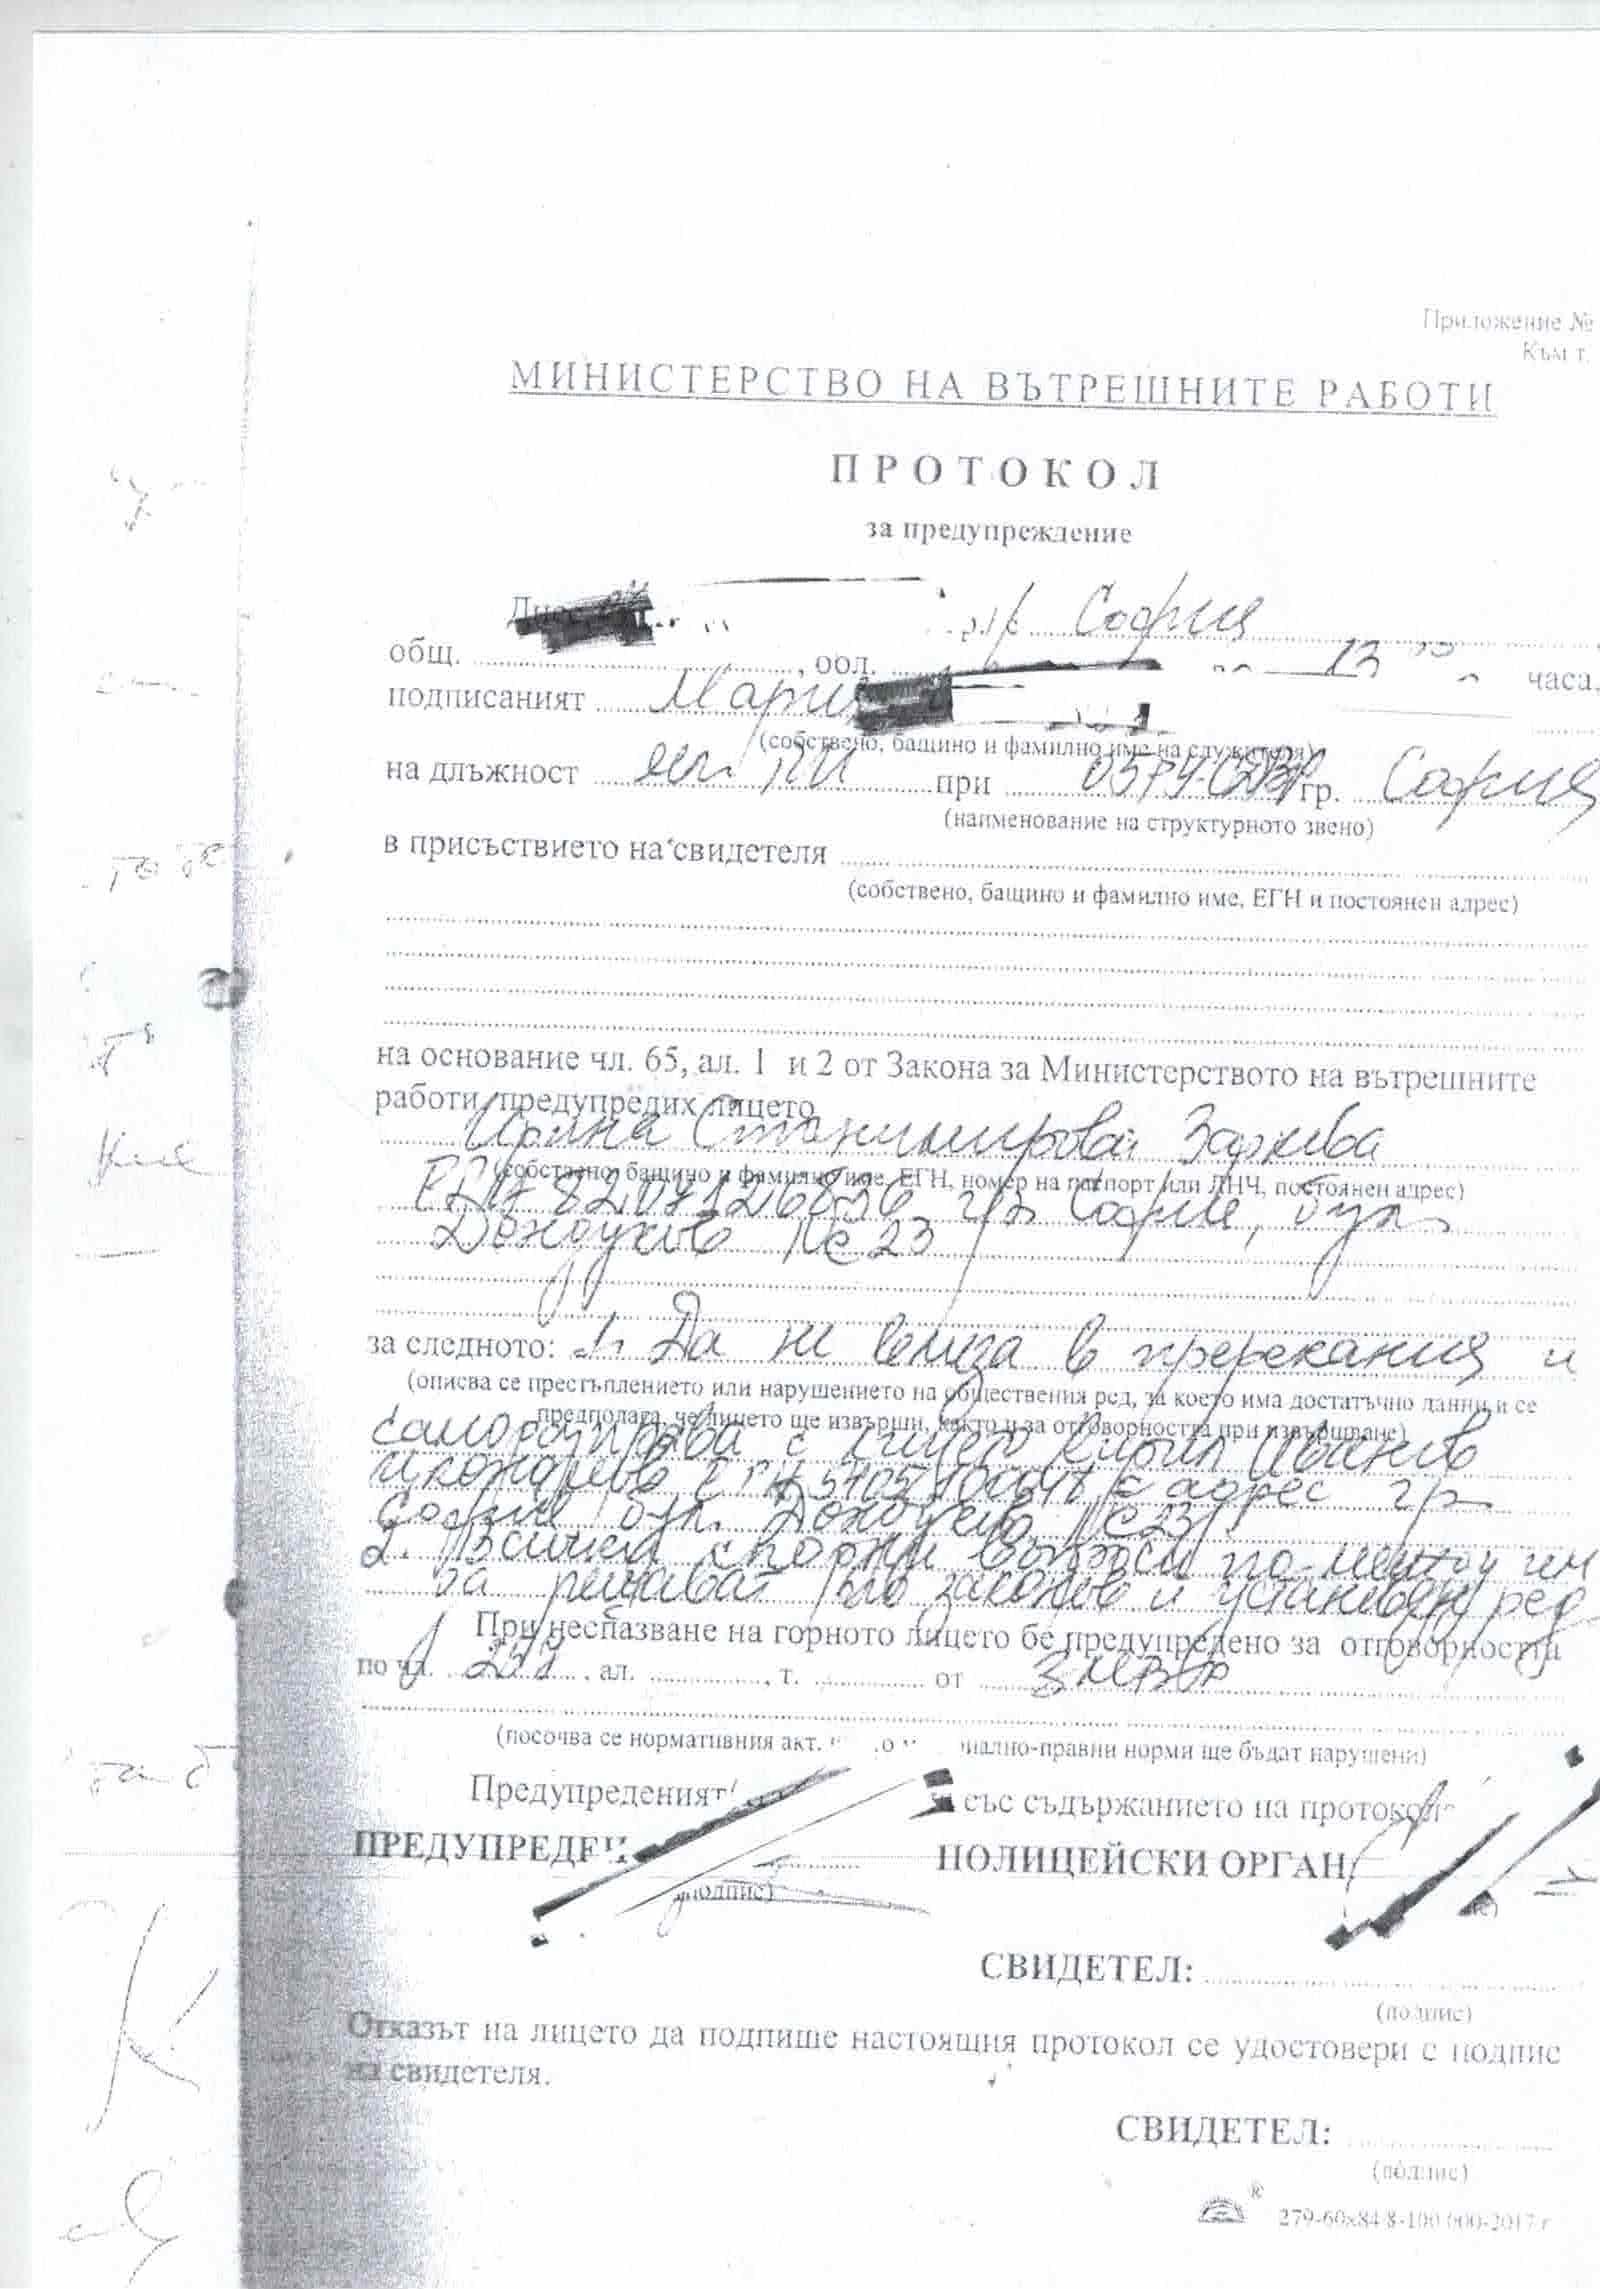 Приложение №
Към т.
МИНИСТЕРСТВО НА ВЪТРЕШНИТЕ РАБОТИ
ПРОТОКОЛ
за предупреждение
Днес София
общ. , обл. 13 часа,
подписаният Мария
(собствено, бащино и фамилно име на служителя)
на длъжност мл. ПИ при 05 РУ-СДВР гр. София
(наименование на структурното звено)
в присъствието на свидетеля
(собствено, бащино и фамилно име, ЕГН и постоянен адрес)
на основание чл. 65, ал. 1 и 2 от Закона за Министерството на вътрешните
работи, предупредих лицето
Станимирова
(собствено, бащино и фамилно име, ЕГН, номер на паспорт или ЛНЧ, постоянен адрес)
ЕГН гр. София, бул.
Дондуков № 23
за следното: 1. Да не влиза в пререкания и
(описва се престъплението или нарушението на обществения ред, за което има достатъчно данни и се
предполага, че лицето ще извърши, както и за отговорността при извършване)
саморазправа с лицето Кирил Иванов
ЕГН с адрес гр.
София бул. Дондуков № 23
2. Всички спорни въпроси по между им
да решават по законов и установен ред
При неспазване на горното лицето бе предупредено за отговорността
по чл. 257, ал. , т. от ЗМВР
(посочва се нормативния акт, чиито материално-правни норми ще бъдат нарушени)
Предупреденият със съдържанието на протокола
ПРЕДУПРЕДЕН: ПОЛИЦЕЙСКИ ОРГАН
(подпис)
СВИДЕТЕЛ:
(подпис)
Отказът на лицето да подпише настоящия протокол се удостовери с подпис
на свидетеля.
СВИДЕТЕЛ:
(подпис)
® 279-60х84/8-100 000-2017 г.